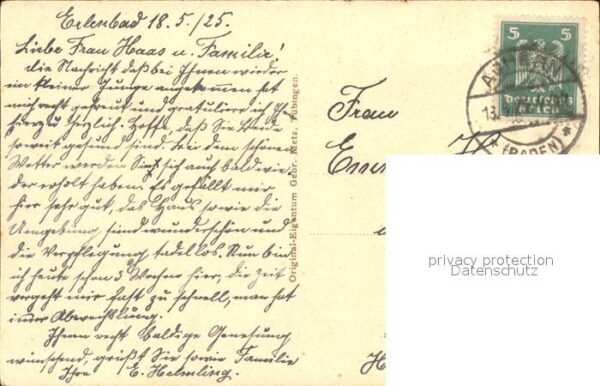 Erlenbad 18.5./25.
Liebe Frau Haas u. Familie!
Die Nachricht daß bei Ihnen wieder
ein kleiner Junge angekommen ist
mich recht gefreut und gratuliere ich Ihnen
hierzu herzlich. Hoffe, daß Sie Beide
soweit gesund sind. Bei dem schönen
Wetter werden Sie sich auch bald wie-
der erholt haben. Es gefällt mir
hier sehr gut, das Haus sowie die
Umgebung, sind wunderschön und
die Verpflegung tadellos. Nun bin
ich heute schon 3 Wochen hier, die Zeit
vergeht mir fast zu schnell, man hat
immer Abwechslung.
Ihnen recht baldige Genesung
wünschend, grüßt Sie sowie Familie
Ihre E. Helmling.
Original-Eigentum Gebr. Metz, Tübingen.
5 5
ACHERN
(BADEN)
Frau
privacy protection
Datenschutz